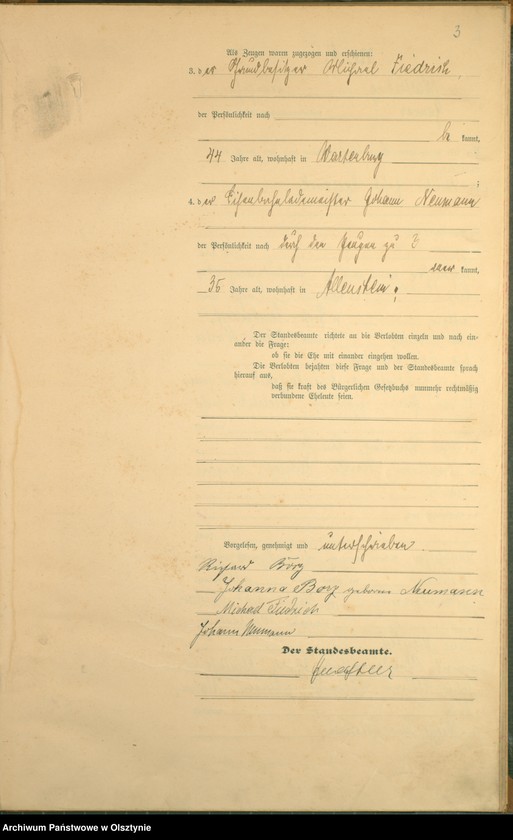 3
Als Zeugen waren zugezogen und erschienen:
3. der Grundbesitzer Michael Fiedrich,
der Persönlichkeit nach
be kannt,
44 Jahre alt, wohnhaft in Wartenburg
;
4. der Eisenbahnlademeister Johann Neumann
der Persönlichkeit nach durch den Zeugen zu 3
aner kannt,
35 Jahre alt, wohnhaft in Allenstein;
Der Standesbeamte richtete an die Verlobten einzeln und nach ein-
ander die Frage:
ob sie die Ehe mit einander eingehen wollen.
Die Verlobten bejahten diese Frage und der Standesbeamte sprach
hierauf aus,
daß sie kraft des Bürgerlichen Gesetzbuchs nunmehr rechtmäßig
verbundene Eheleute seien.
Vorgelesen, genehmigt und unterschrieben
Borz
Johanna Borz geborene Neumann
Michael Fiedrich
Johann Neumann
Der Standesbeamte.
Archiwum Państwowe w Olsztynie